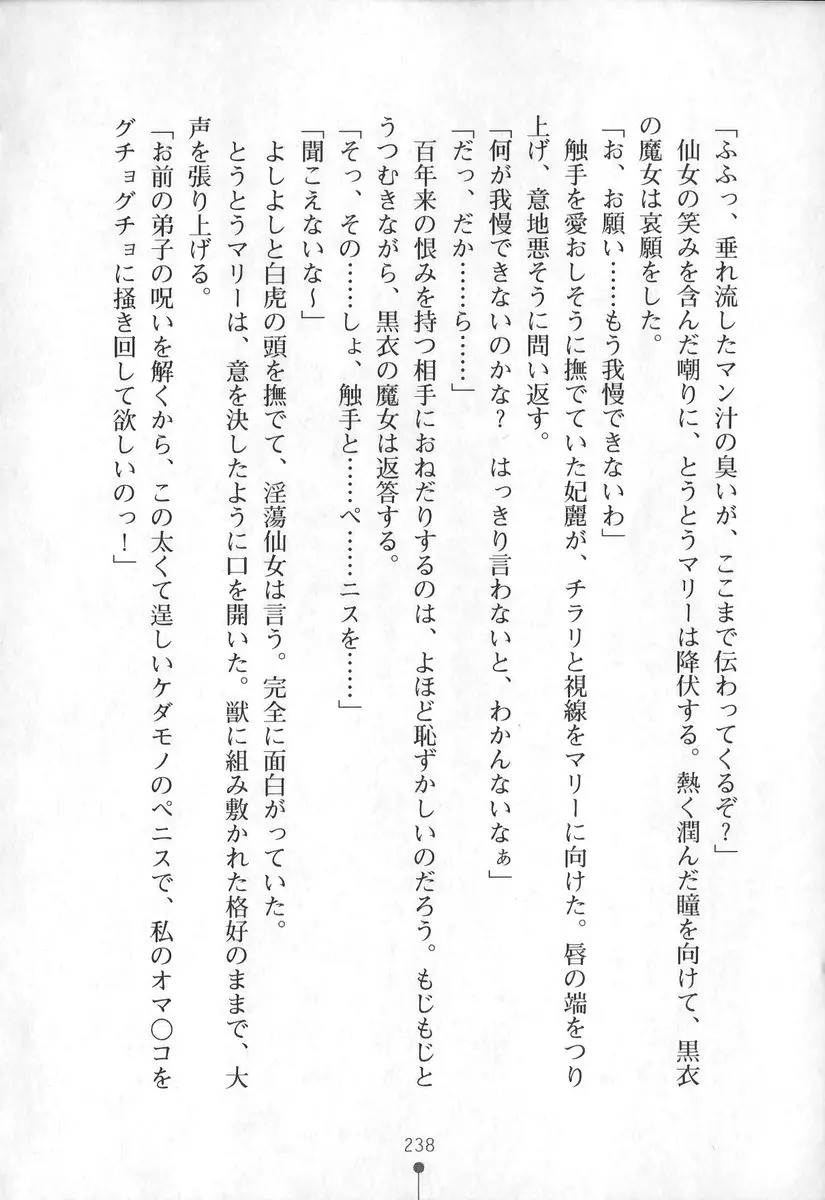 「ふふっ、垂れ流したマン汁の臭いが、ここまで伝わってくるぞ？」
　仙女の笑みを含んだ嘲りに、とうとうマリーは降伏する。熱く潤んだ瞳を向けて、黒衣
の魔女は哀願をした。
「お、お願い……もう我慢できないわ」
　触手を愛おしそうに撫でていた妃麗が、チラリと視線をマリーに向けた。唇の端をつり
上げ、意地悪そうに問い返す。
「何が我慢できないのかな？　はっきり言わないと、わかんないなぁ」
「だっ、だか……ら……」
　百年来の恨みを持つ相手におねだりするのは、よほど恥ずかしいのだろう。もじもじと
うつむきながら、黒衣の魔女は返答する。
「そっ、その……しょ、触手と……ぺ……ニスを……」
「聞こえないな～」
　よしよしと白虎の頭を撫でて、淫蕩仙女は言う。完全に面白がっていた。
　とうとうマリーは、意を決したように口を開いた。獣に組み敷かれた格好のままで、大
声を張り上げる。
「お前の弟子の呪いを解くから、この太くて逞しいケダモノのペニスで、私のオマ〇コを
グチョグチョに掻き回して欲しいのっ！」
238